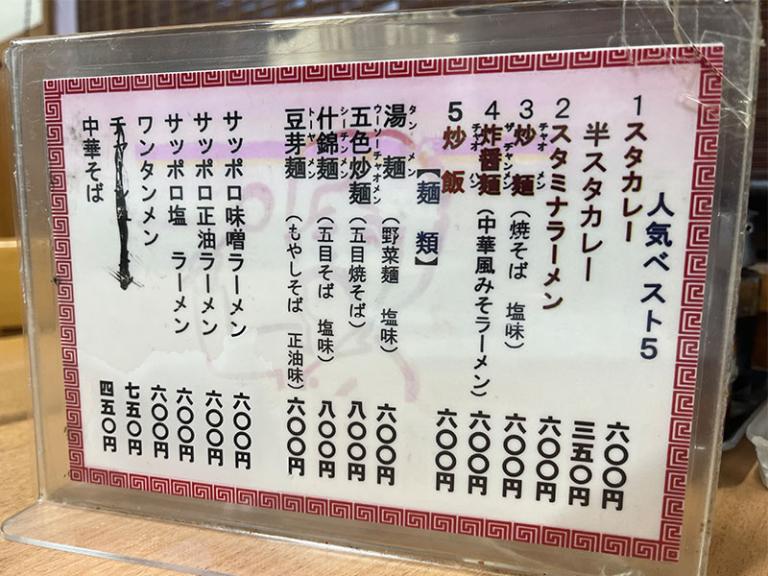 人気ベスト5
1スタカレー 六〇〇円
半スタカレー 三五〇円
2スタミナラーメン 六〇〇円
3炒麺（焼そば 塩味） 六〇〇円
チャオ メン
4炸醤麺（中華風みそラーメン） 六〇〇円
ザ チャンメン
5炒飯 六〇〇円
チャオ ハン
【麺類】
湯麺（野菜麺 塩味） 六〇〇円
タン メン
五色炒麺（五目焼そば） 八〇〇円
ウーソーチャオメン
什錦麺（五目そば 塩味） 八〇〇円
シーチンメン
豆芽麺（もやしそば 正油味） 六〇〇円
トーヤ メン
サッポロ味噌ラーメン 六〇〇円
サッポロ正油ラーメン 六〇〇円
サッポロ塩 ラーメン 六〇〇円
ワンタンメン 六〇〇円
チャ 七五〇円
中華そば 四五〇円